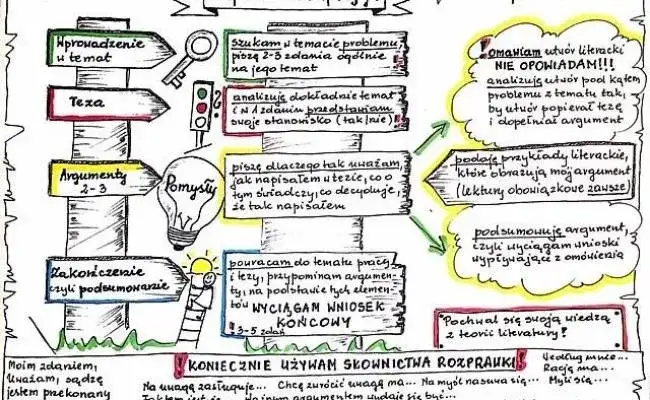 Wprowadzenie
w temat
szukam w temacie problemu,
piszę 2-3 zdania ogólnie
na jego temat
Teza
analizuję dokładnie temat
i w 1 zdaniu przedstawiam
swoje stanowisko (tak/nie)
Argumenty
2-3
Pomysły
piszę dlaczego tak uważam,
jak napisałem w tezie, co o
tym świadczy, co decyduje,
że tak napisałem
Zakończenie
czyli podsumowanie
powracam do tematu pracy
i tezy, przypominam argumen-
ty, na podstawie tych elemen-
tów WYCIĄGAM WNIOSEK
KOŃCOWY
3-5 zdań
! omawiam utwór literacki
NIE OPOWIADAM!!!
analizuję utwór pod kątem
problemu z tematu tak,
by utwór popierał tezę
i dopełniał argument
podaję przykłady literackie,
które obrazują mój argument
(lektury obowiązkowe zawsze
podsumowuję argument,
czyli wyciągam wnioski
wypływające z omówienia
Pochwal się swoją wiedzą
z teorii literatury!
! KONIECZNIE UŻYWAM SŁOWNICTWA ROZPRAWKI!
Moim zdaniem,
Uważam, sądzę
jestem przekonany
Na uwagę zasługuje... Chcę zwrócić uwagę na... Na myśl nasuwa się...
Według mnie...
Rację ma...
Myślę...